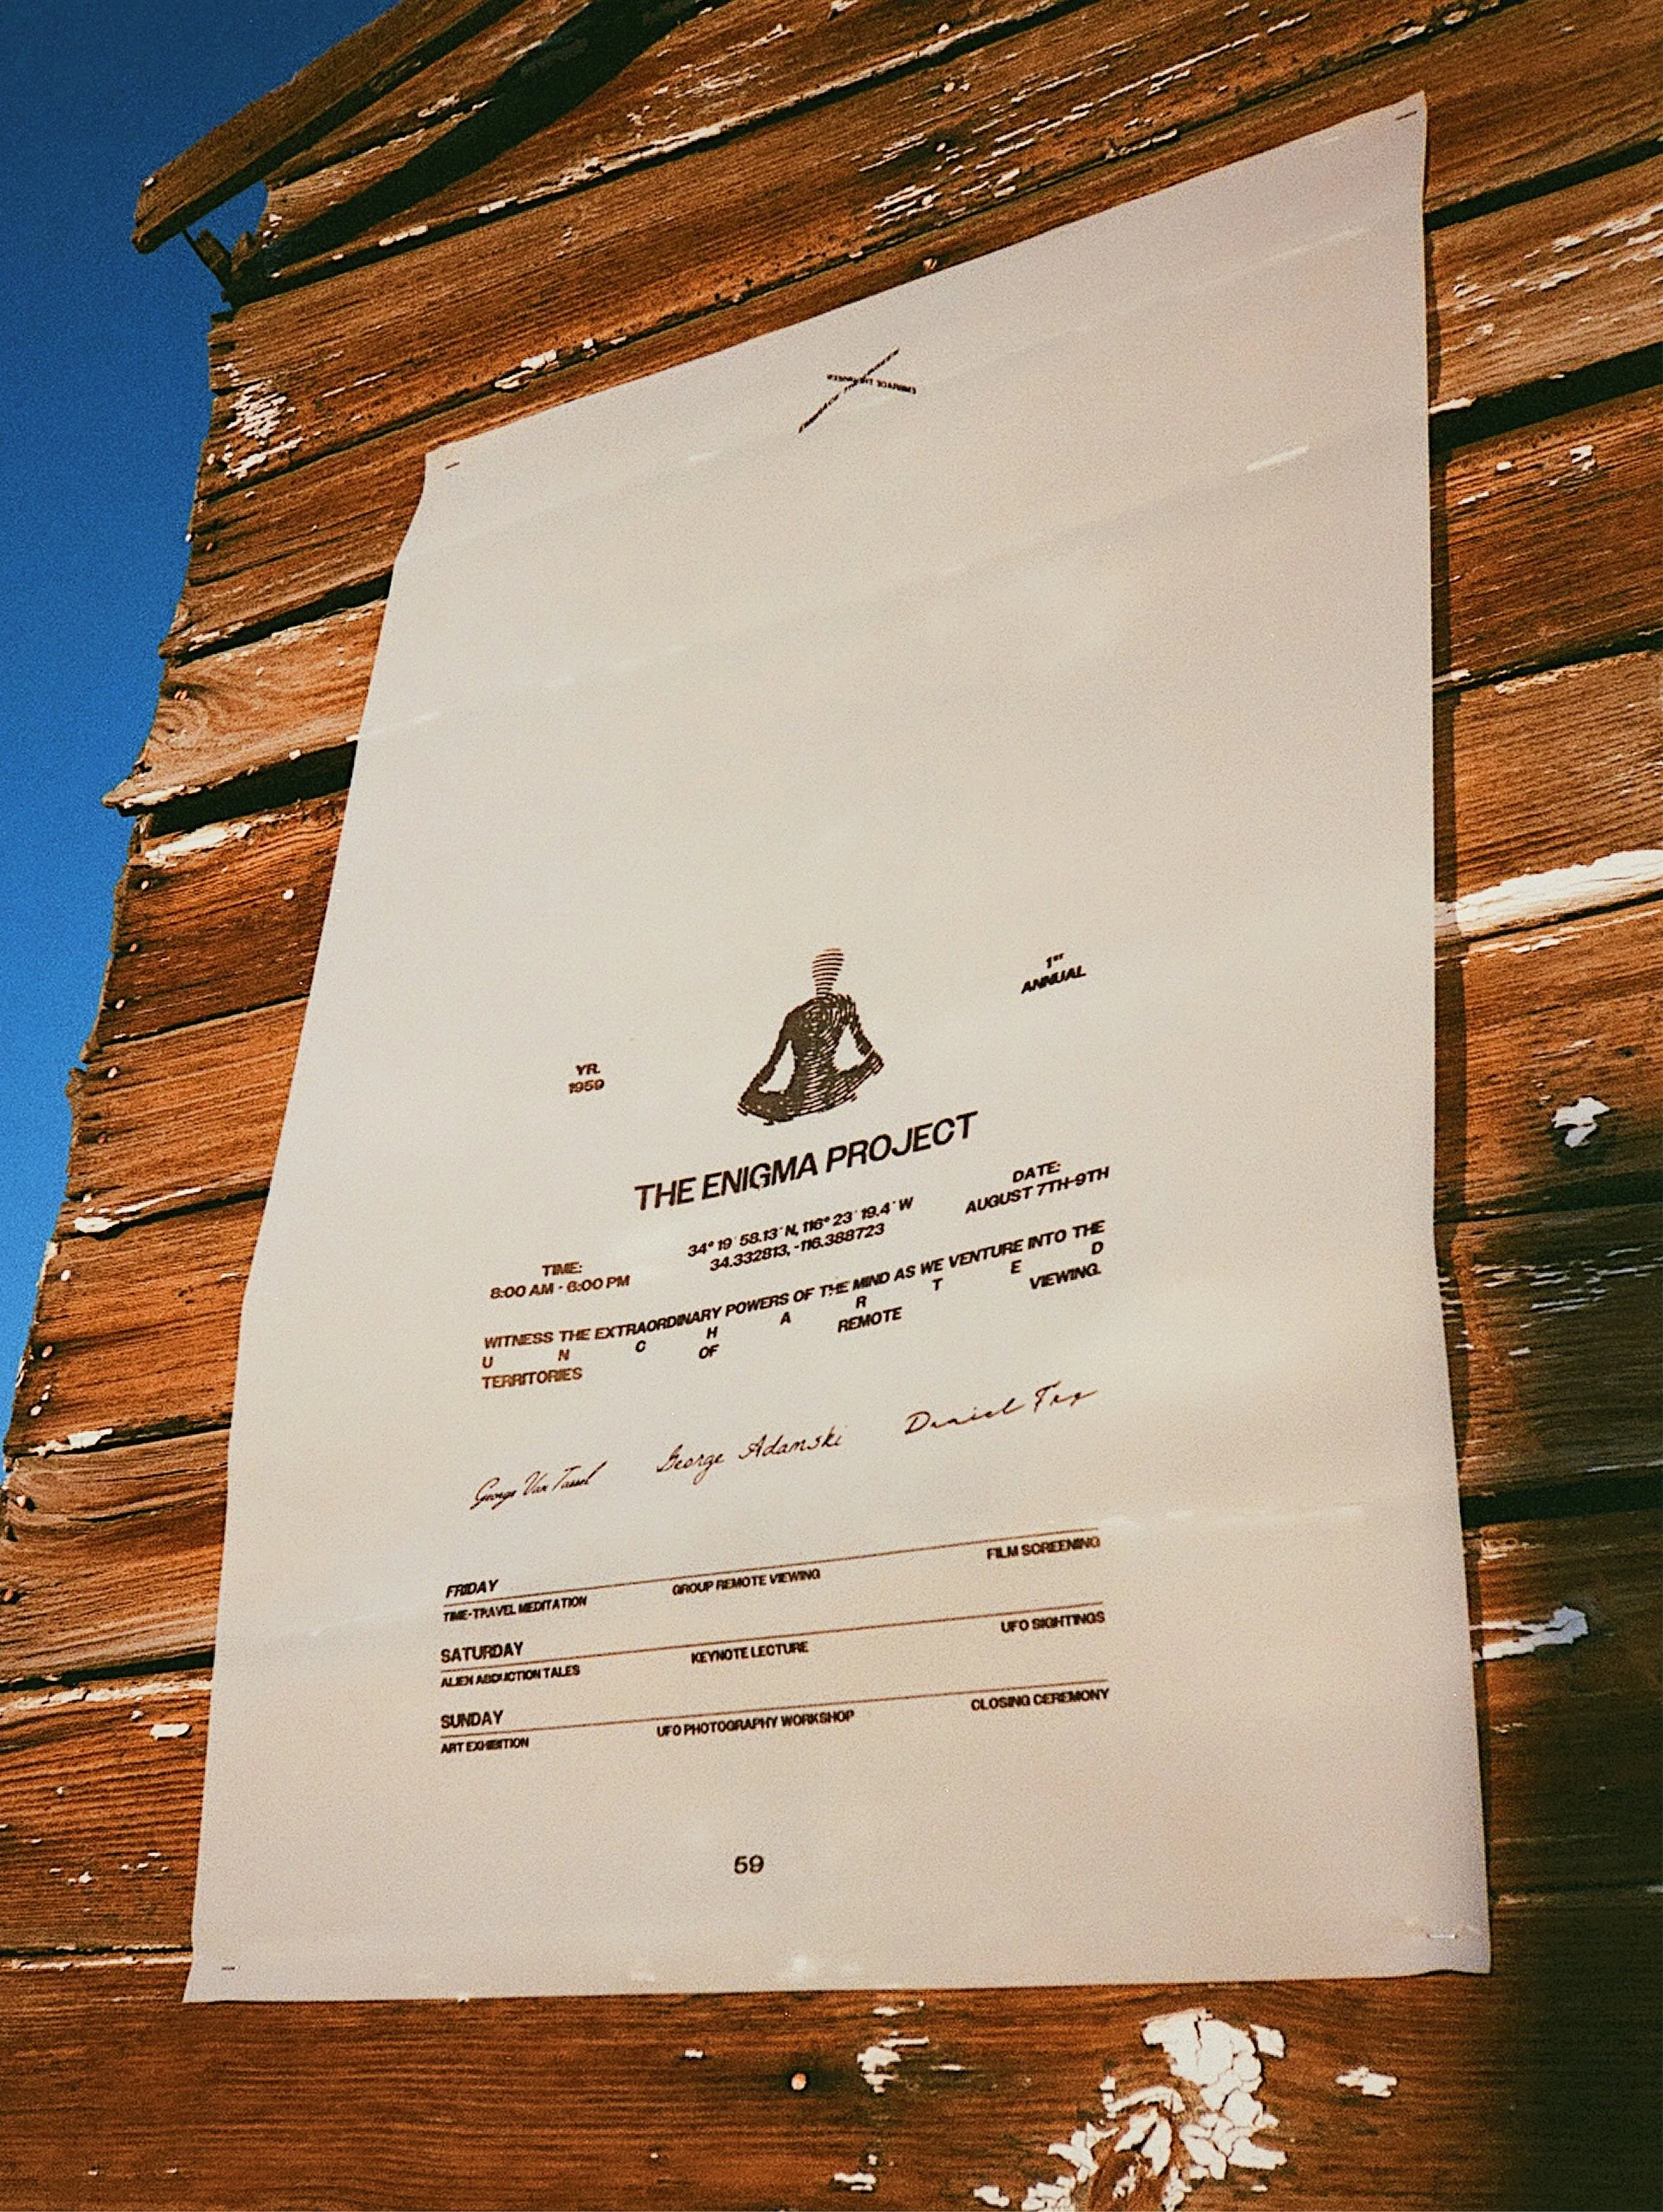 EMBRACE THE UNSEEN
1ST
ANNUAL
YR.
1959
THE ENIGMA PROJECT
DATE:
AUGUST 7TH-9TH
34° 19' 58.13" N, 116° 23' 19.4" W
34.332813, -116.388723
TIME:
8:00 AM - 6:00 PM
WITNESS THE EXTRAORDINARY POWERS OF THE MIND AS WE VENTURE INTO THE
U N C H A R T E D
TERRITORIES OF REMOTE VIEWING.
George Van Tassel George Adamski Daniel Fry
FRIDAY
TIME-TRAVEL MEDITATION GROUP REMOTE VIEWING FILM SCREENING
SATURDAY
ALIEN ABDUCTION TALES KEYNOTE LECTURE UFO SIGHTINGS
SUNDAY
ART EXHIBITION UFO PHOTOGRAPHY WORKSHOP CLOSING CEREMONY
59